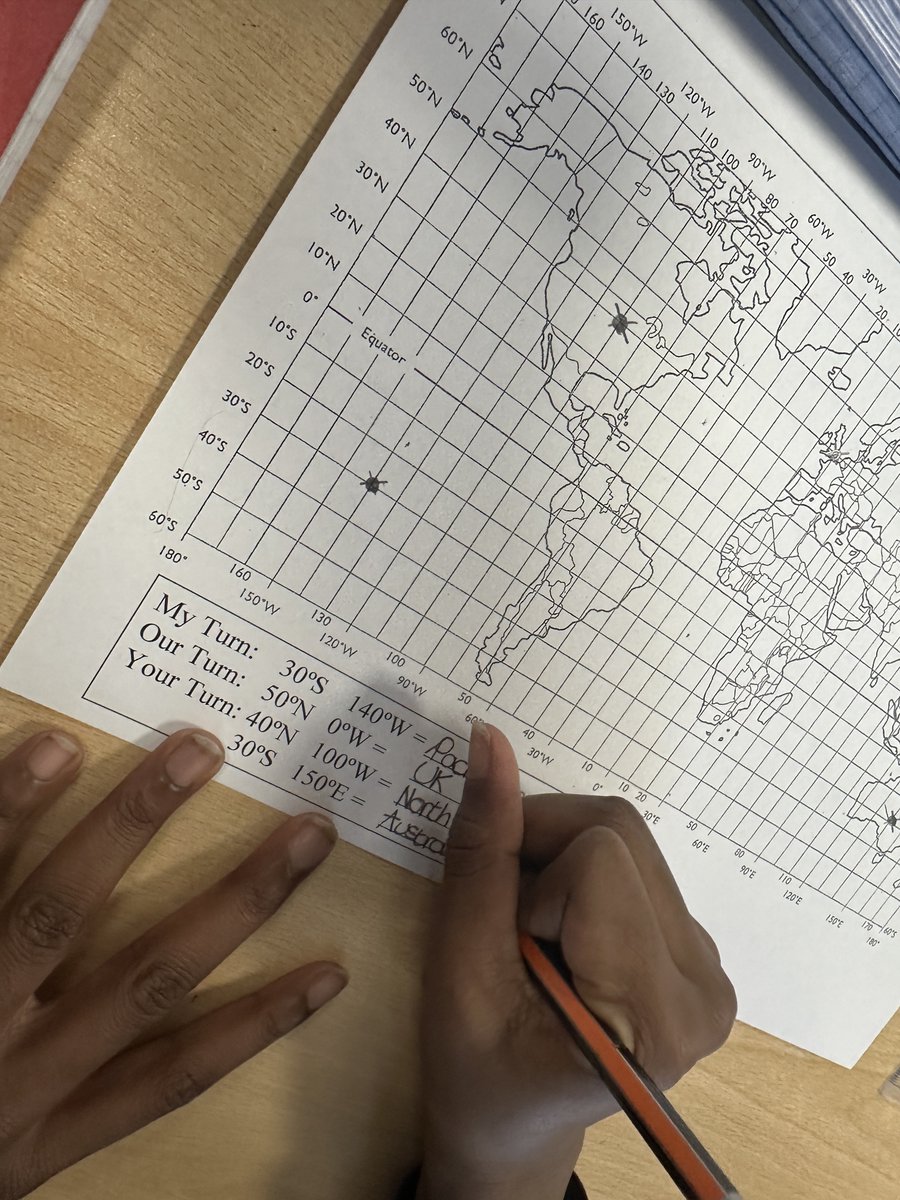 150°W
160
140
120°W
130
110
100
90°W
80
70
60°W
50
40
30°W
20
60°N
50°N
40°N
30°N
20°N
10°N
0°
Equator
10°S
20°S
30°S
40°S
50°S
60°S
180°
160
150°W
130
120°W
100
90°W
50
40
30°W
10
0°
10
20
30°E
50
60°E
90°E
110
120°E
150°E
170
180°
60°S
My Turn: 30°S 140°W =
Our Turn: 50°N 0°W = UK
Your Turn: 40°N 100°W = North
30°S 150°E =